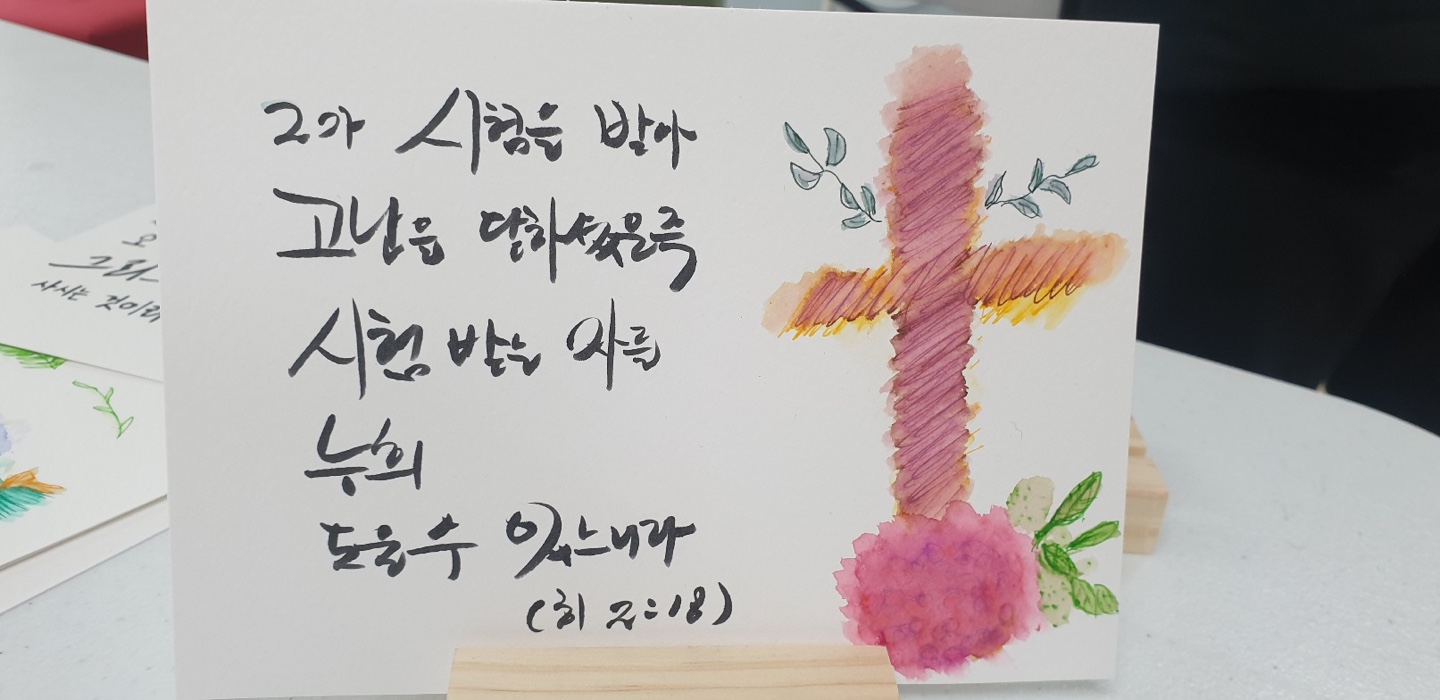 그가 시험을 받아
고난을 당하셨은즉
시험 받는 자를
능히
도울 수 있느니라
(히 2:18)
오
그리스
사시는 것이라